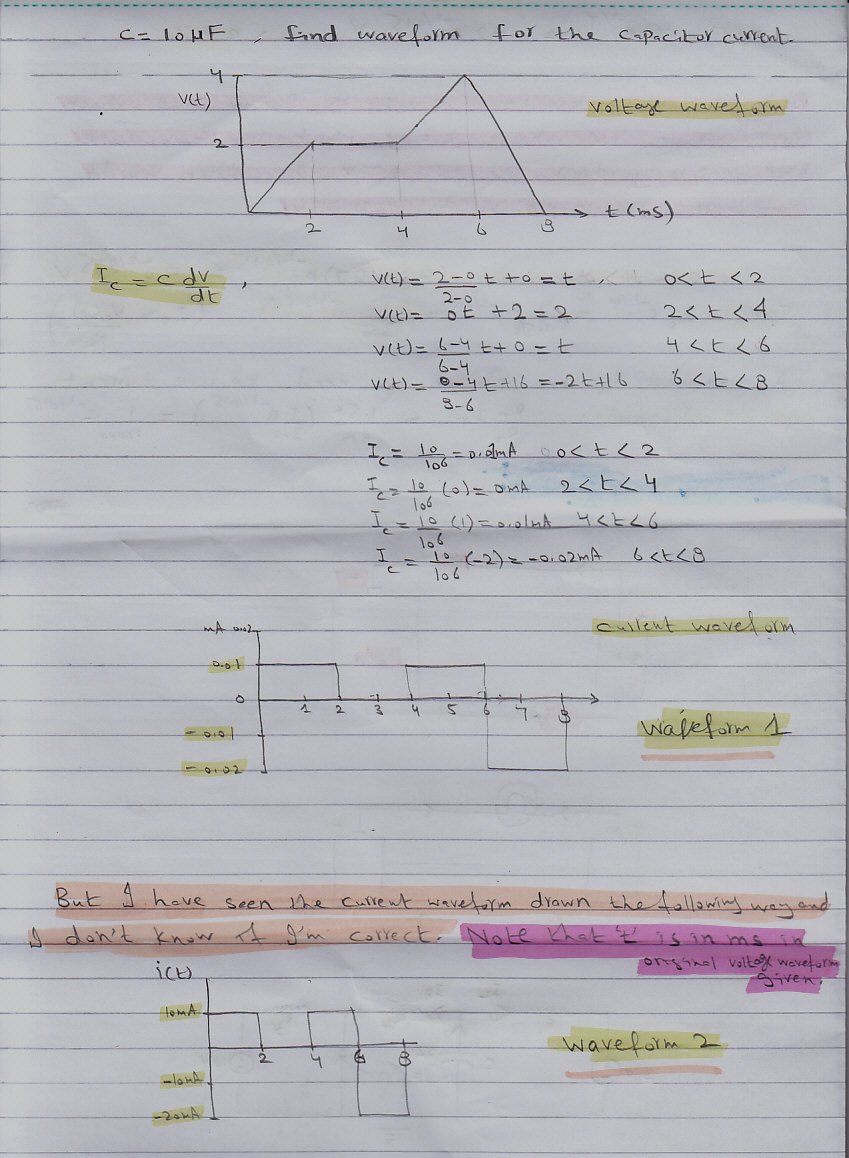 C = 10 μF , find waveform for the capacitor current.
4
V(t)
voltage waveform
2
t (ms)
2 4 6 8
I_c = c dv/dt ,
V(t) = (2-0)/(2-0) t + 0 = t 0 < t < 2
V(t) = 0t + 2 = 2 2 < t < 4
V(t) = (6-4)/(6-4) t + 0 = t 4 < t < 6
V(t) = (0-4)/(8-6) t + 16 = -2t + 16 6 < t < 8
I_c = 10/10^6 = 0.01mA 0 < t < 2
I_c = 10/10^6 (0) = 0mA 2 < t < 4
I_c = 10/10^6 (1) = 0.01mA 4 < t < 6
I_c = 10/10^6 (-2) = -0.02mA 6 < t < 8
mA 0.02
current waveform
0.01
0
1 2 3 4 5 6 7 8
-0.01
waveform 1
-0.02
But I have seen the current waveform drawn the following way and
I don't know if I'm correct. Note that 't' is in ms in
original voltage waveform
given.
i(t)
10mA
waveform 2
2 4 6 8
-10mA
-20mA